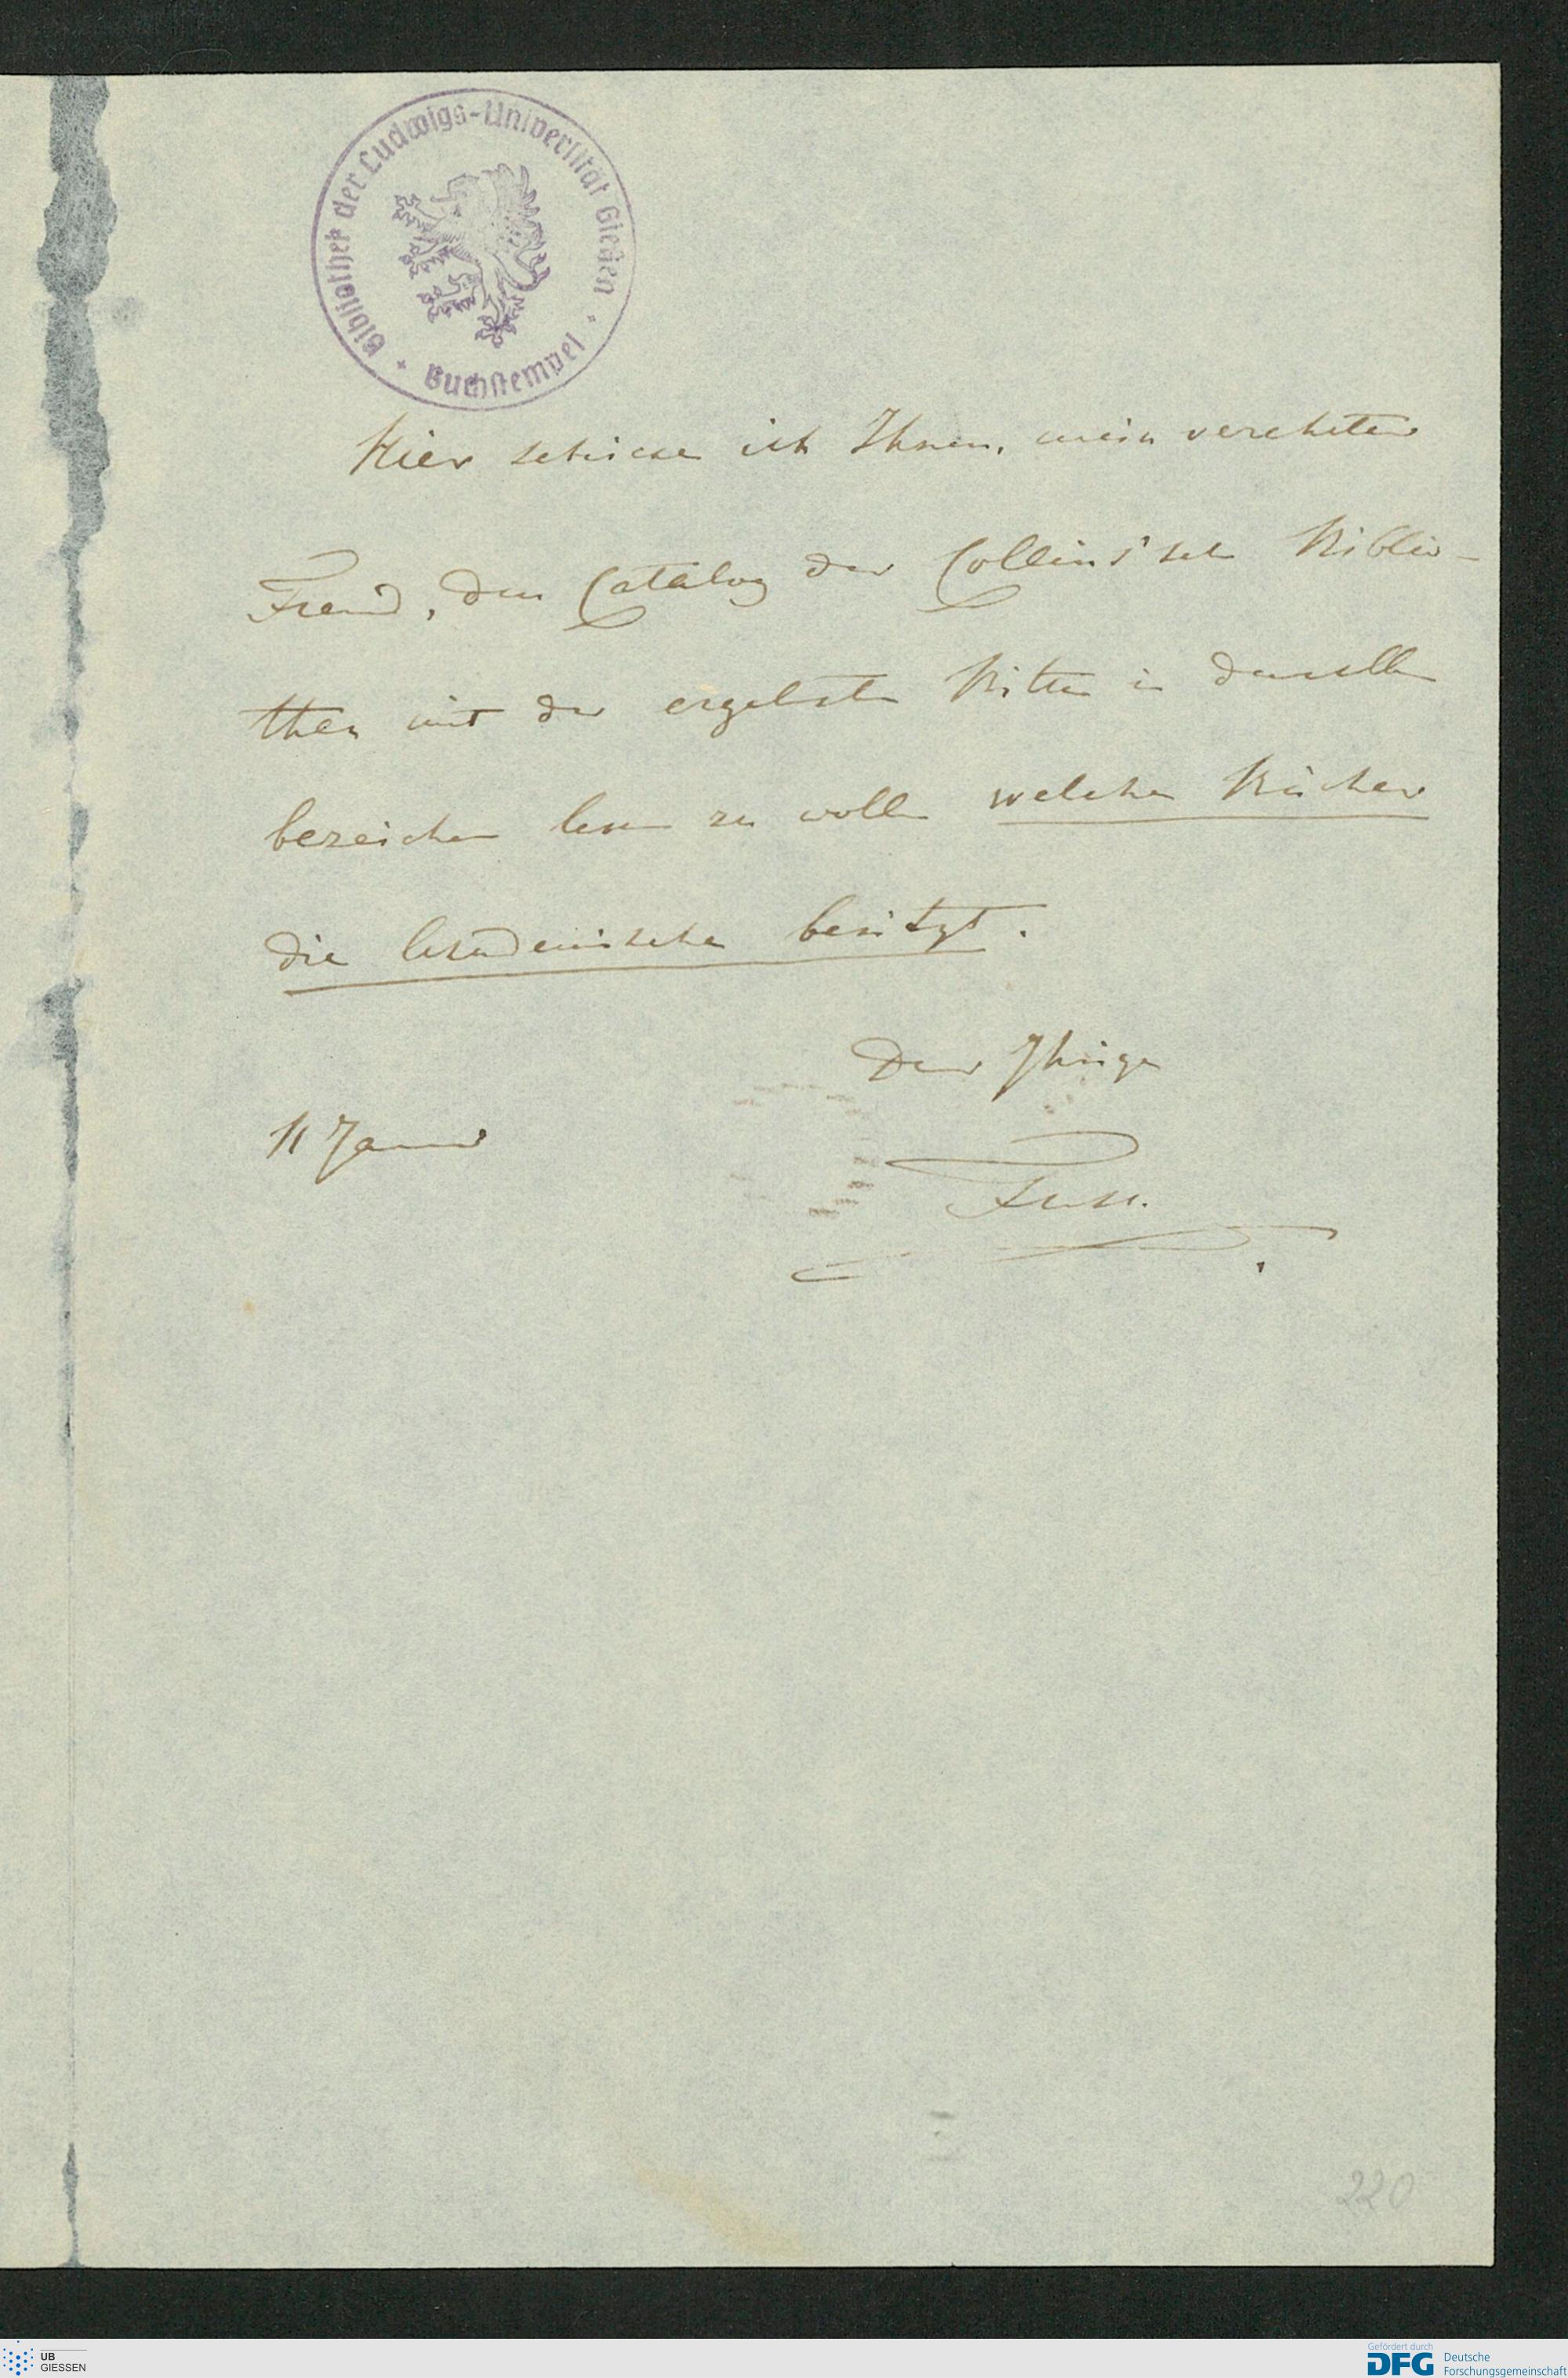 Bibliothek der Ludwigs-Universität Gießen
Buchstempel
Hier schicke ich Ihnen, mein verehrter
Freund, den Catalog der Collins'schen Biblio-
thek mit der ergebensten Bitte in demselben
bezeichnen lassen zu wollen welche Bücher
die Akademische besitzt.
Der Ihrige
11 Januar
Fuss.
220
UB
GIESSEN
Gefördert durch
DFG Deutsche
Forschungsgemeinschaft